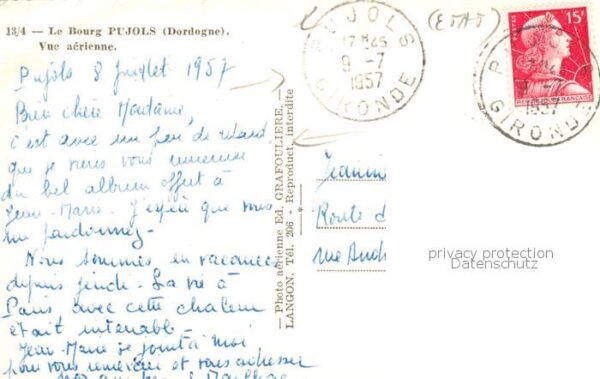 13/4 — Le Bourg PUJOLS (Dordogne).
Vue aérienne.
Pujols 8 Juillet 1957
Bien chère Madame,
c'est avec un peu de retard
que je viens vous remercier
du bel album offert à
Jean-Marie. J'espère que vous
me pardonnez.
Nous sommes en vacances
depuis jeudi. La vie à
Paris avec cette chaleur
était intenable.
Jean-Marie se joint à moi
pour vous remercier et vous adresser
— Photo aérienne Ed. GRAFOULIERE. —
LANGON. Tél. 206 - Reproduct. interdite
PUJOLS
17H45
9-7
1957
GIRONDE
(ETAT)
POSTES
15F
REPUBLIQUE FRANÇAISE
1957
GIRONDE
Route d
rue
privacy protection
Datenschutz